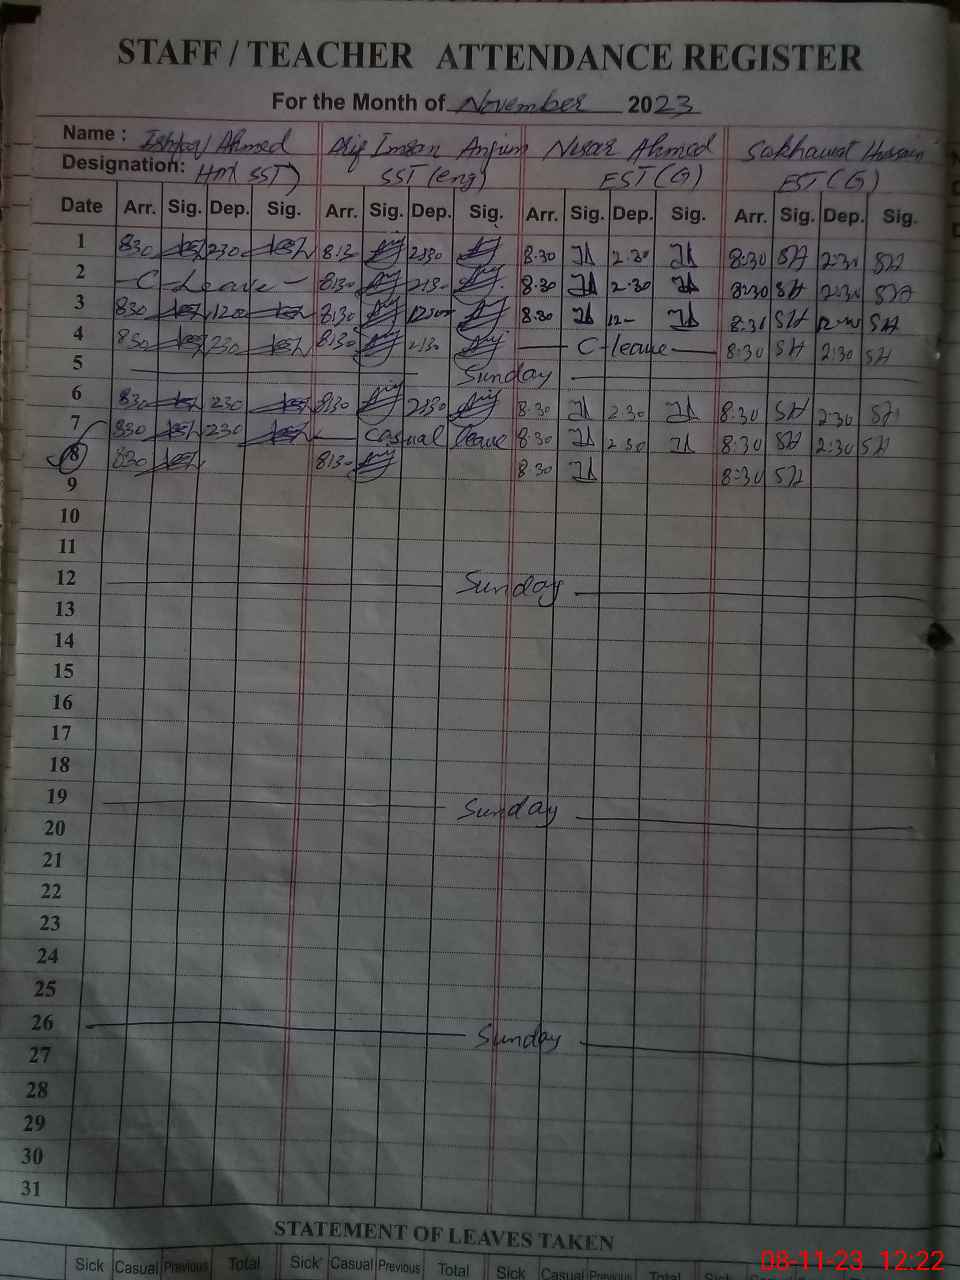 STAFF / TEACHER ATTENDANCE REGISTER
For the Month of November 2023
Name : Ishfaq Ahmed Asif Imran Anjum Nisar Ahmed Sakhawat Hussain
Designation: HM (SST) SST (eng) EST (G) EST (G)
Date Arr. Sig. Dep. Sig. Arr. Sig. Dep. Sig. Arr. Sig. Dep. Sig. Arr. Sig. Dep. Sig.
1 830 230 8:30 2:30 8.30 2.30 8:30 SH 2:30 SH
2 C-Leave 8:30 2:30 8.30 2.30 8:30 SH 2:30 SH
3 830 1200 8:30 8.30 12- 8:30 SH SH
4 830 230 8:30 2:30 C-leave 8:30 SH 2:30 SH
5 Sunday
6 830 230 8:30 2:30 8.30 2.30 8:30 SH 2:30 SH
7 830 230 Casual leave 8.30 2.30 8:30 SH 2:30 SH
8 830 8:30 8.30 8:30 SH
9
10
11
12 Sunday
13
14
15
16
17
18
19 Sunday
20
21
22
23
24
25
26 Sunday
27
28
29
30
31
STATEMENT OF LEAVES TAKEN
Sick Casual Previous Total Sick Casual Previous Total Sick Casual Previous Total Sick Casual
08-11-23 12:22